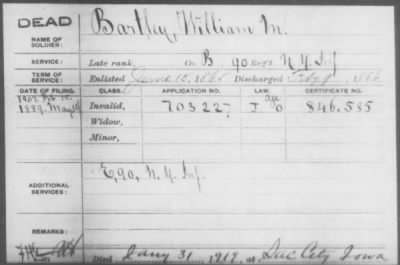 DEAD
Bartley, William M.
NAME OF SOLDIER:
SERVICE: Late rank, Co. B, 90 Reg't N.Y. Inf
TERM OF SERVICE: Enlisted June 15, 1865 Discharged Feby 9, 1866
DATE OF FILING. CLASS. APPLICATION NO. LAW. CERTIFICATE NO.
1907
1889. May Invalid, 703227 J 846.585
Widow,
Minor,
ADDITIONAL SERVICES: E, 90, N.Y. Inf.
REMARKS:
Died Jany 31, 1918, at Sac City Iowa